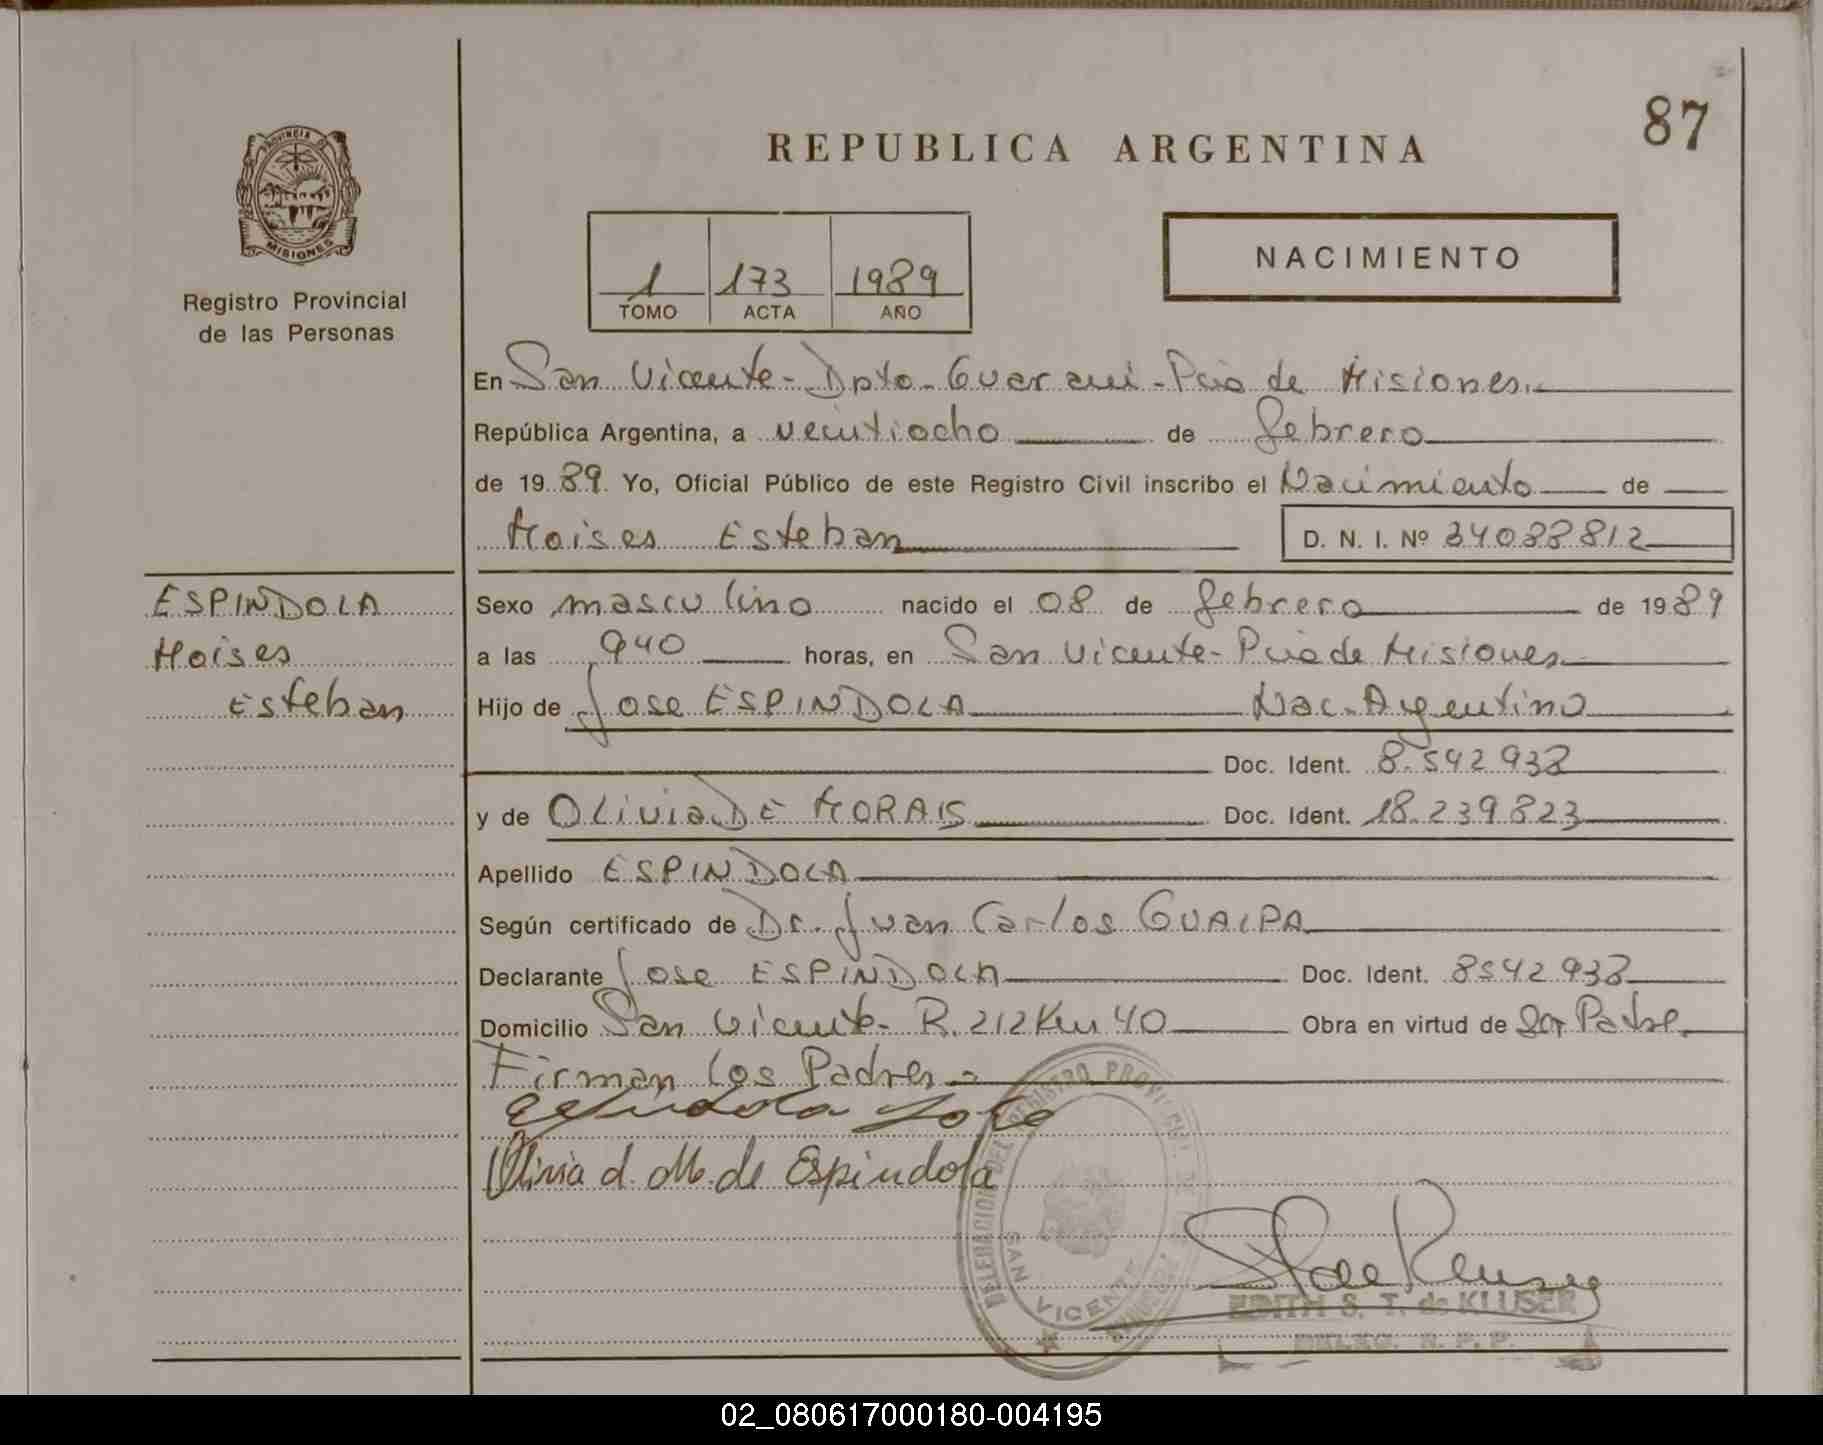 87
REPUBLICA ARGENTINA
PROVINCIA DE
MISIONES
Registro Provincial
de las Personas
1 173 1989
TOMO ACTA AÑO
NACIMIENTO
En San Vicente - Dpto - Guarani - Pcia de Misiones.
República Argentina, a veintiocho de febrero
de 1989. Yo, Oficial Público de este Registro Civil inscribo el Nacimiento de
Moises Esteban D. N. I. Nº 34088812
ESPINDOLA
Moises
Esteban
Sexo masculino nacido el 08 de febrero de 1989
a las 940 horas, en San Vicente - Pcia de Misiones
Hijo de Jose ESPINDOLA Nac. Argentino
Doc. Ident. 8.542.938
y de OLiviA DE MORAIS Doc. Ident. 18.239.823
Apellido ESPINDOLA
Según certificado de Dr. Juan Carlos GUALPA
Declarante Jose ESPINDOLA Doc. Ident. 8542.938
Domicilio San Vicente - R. 212 Km 40 Obra en virtud de Ser Padre
Firman los Padres -
Espindola Jose
Olivia d. M. de Espindola
DELEGACION DEL REGISTRO PROVINCIAL DE
SAN VICENTE
EDITH S. T. de KLUSER
DELEG. R. P. P.
02_080617000180-004195